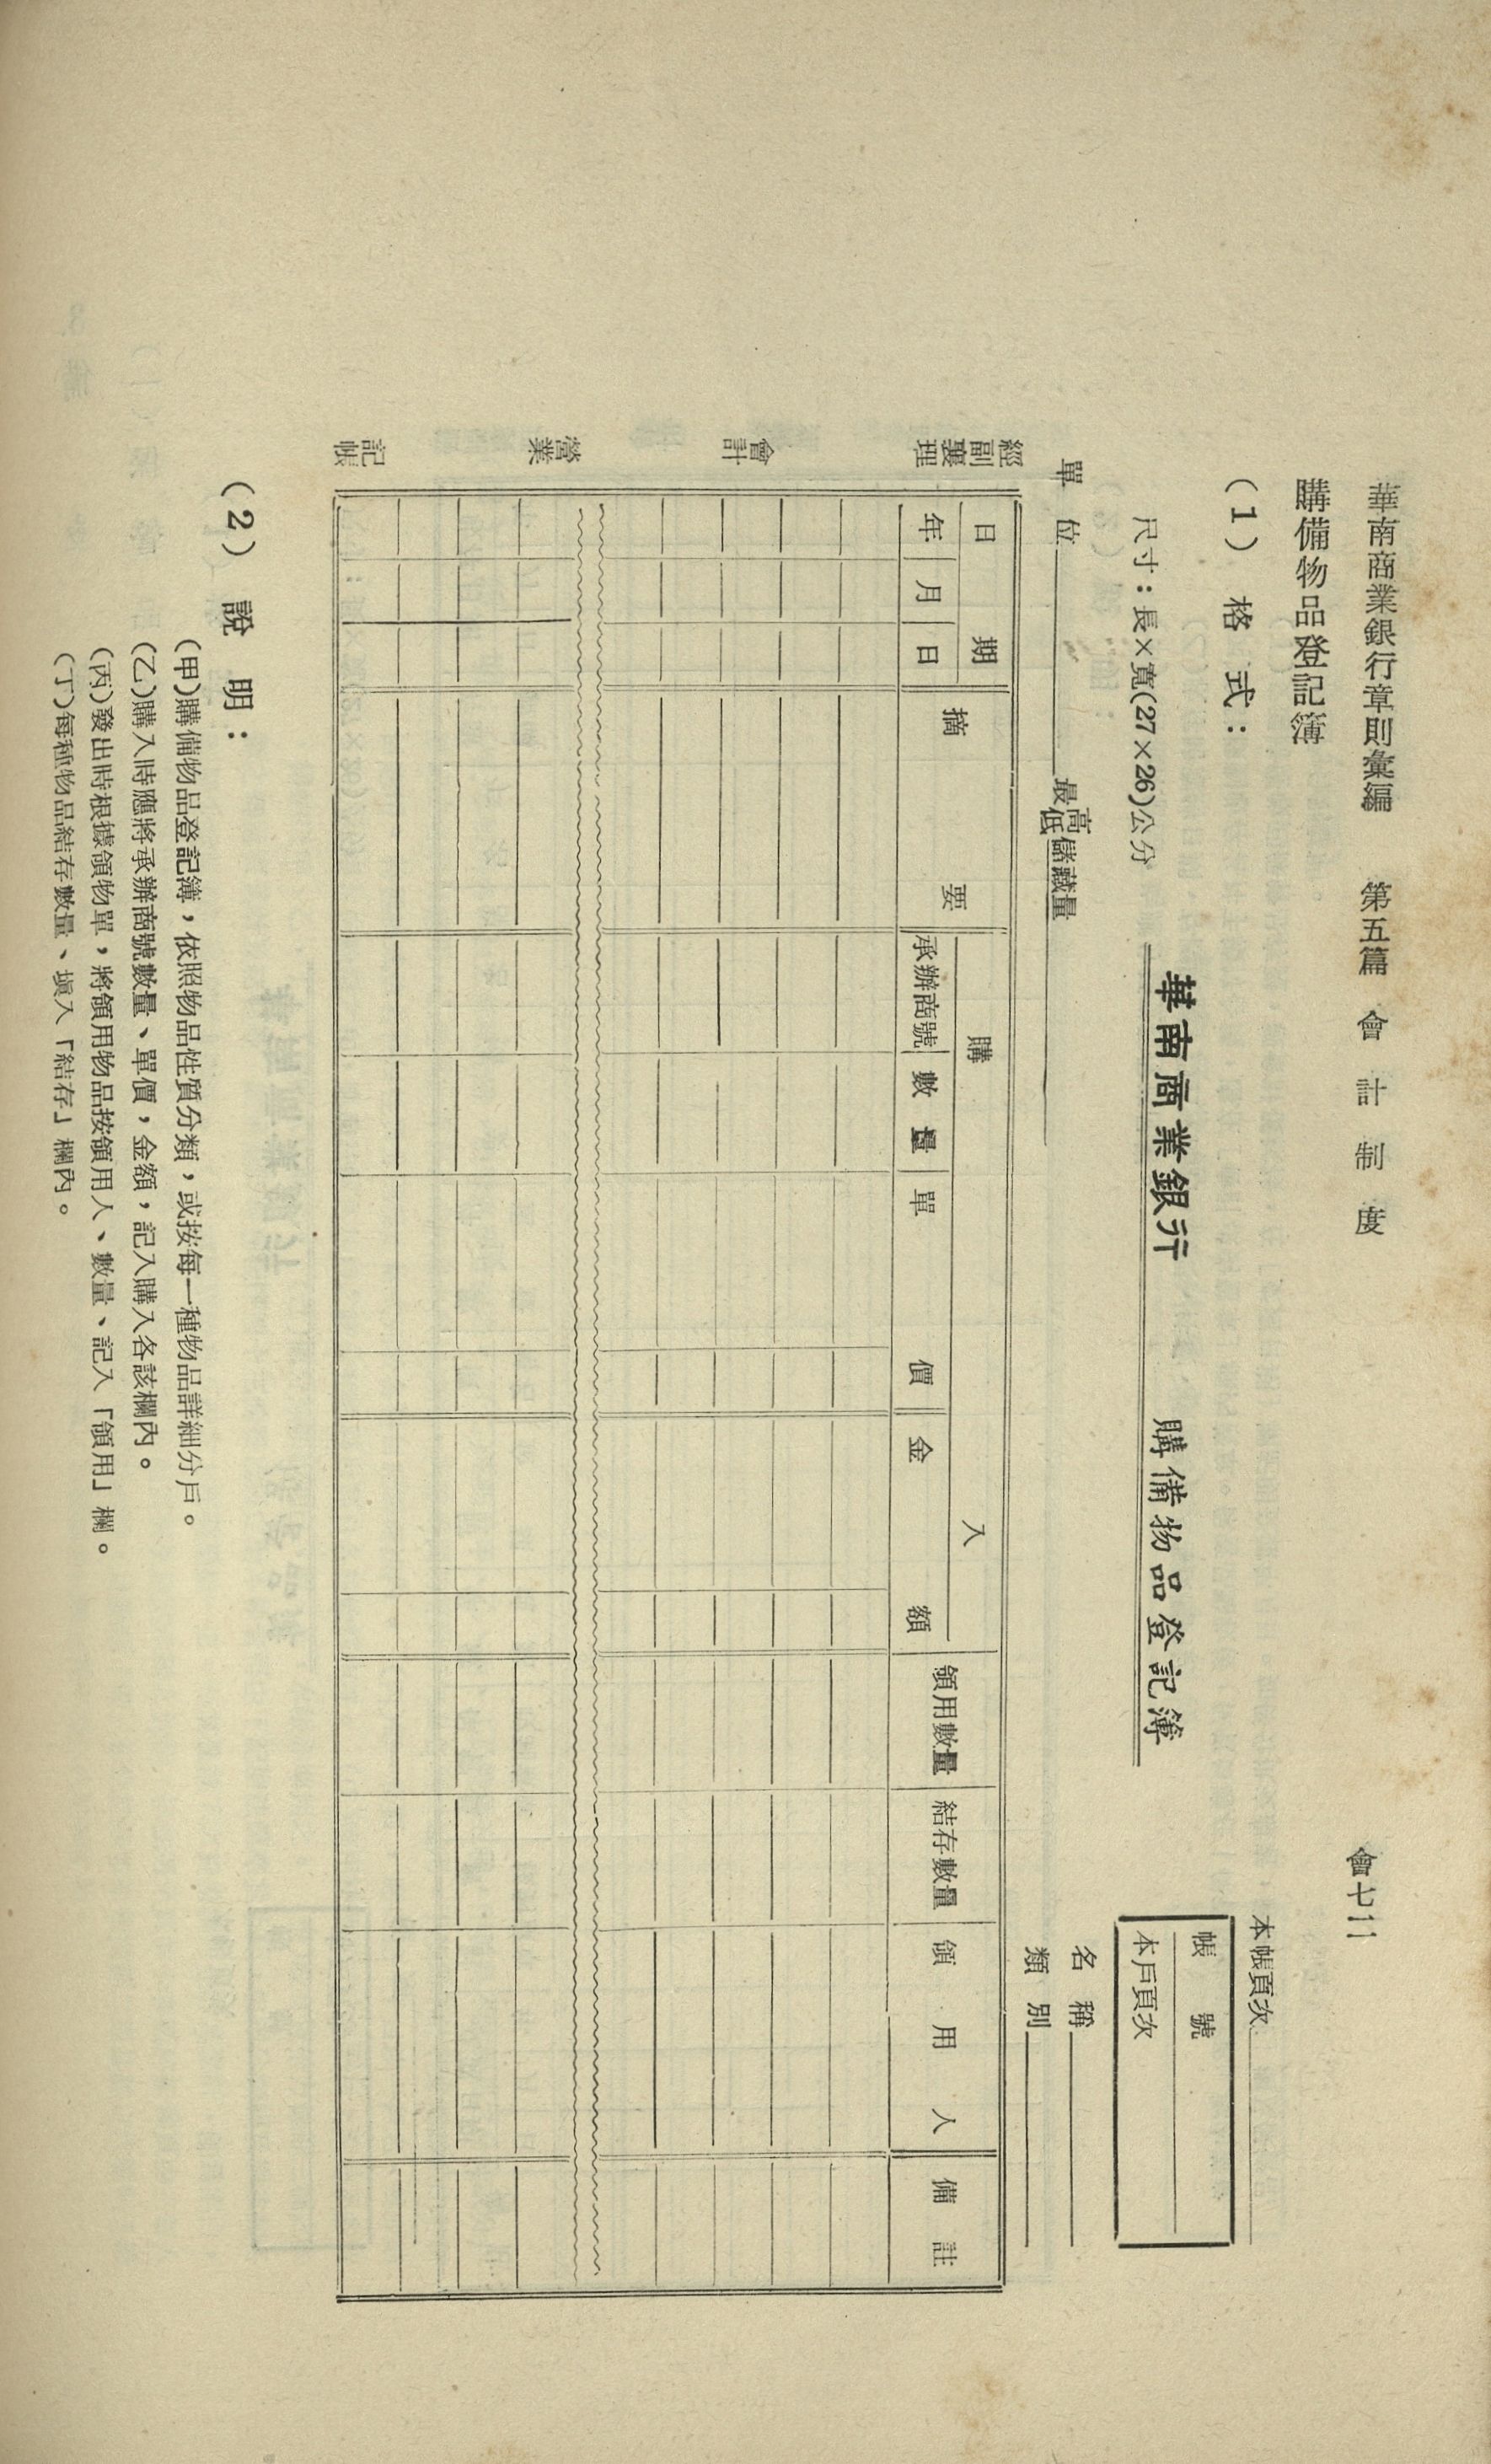 華南商業銀行章則彙編　第五篇　會計制度　會七二
購備物品登記簿
(1) 格式：
尺寸：長×寬(27×26)公分
本帳頁次
華南商業銀行　購備物品登記簿
帳號
本戶頁次
名稱
類別
單位　最高低儲藏量
日期　摘要　購入　領用數量　結存數量　領用人　備註
年　月　日　承辦商號　數量　單價　金額
經副襄理　會計　營業　記帳
(2) 說明：
(甲)購備物品登記簿，依照物品性質分類，或按每一種物品詳細分戶。
(乙)購入時應將承辦商號數量、單價，金額，記入購入各該欄內。
(丙)發出時根據領物單，將領用物品按領用人、數量、記入「領用」欄。
(丁)每種物品結存數量、塡入「結存」欄內。